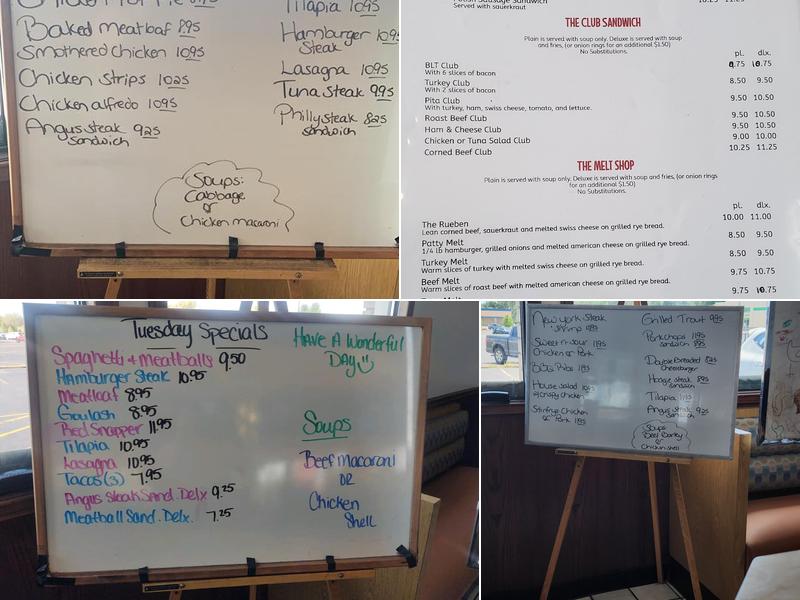 Baked Meatloaf 8.95
Smothered Chicken 10.95
Chicken Strips 10.25
Chicken alfredo 10.95
Angus steak 9.25
sandwich
Tilapia 10.95
Hamburger 10.95
Steak
Lasagna 10.95
Tuna Steak 9.95
Philly steak 8.25
sandwich
Soups:
Cabbage
or
Chicken macaroni
Served with sauerkraut
THE CLUB SANDWICH
Plain is served with soup only. Deluxe is served with soup
and fries, (or onion rings for an additional $1.50)
No Substitutions.
pl. dlx.
BLT Club 9.75 10.75
With 6 slices of bacon
Turkey Club 8.50 9.50
With 2 slices of bacon
Pita Club 9.50 10.50
With turkey, ham, swiss cheese, tomato, and lettuce.
Roast Beef Club 9.50 10.50
Ham & Cheese Club 9.50 10.50
Chicken or Tuna Salad Club 9.00 10.00
Corned Beef Club 10.25 11.25
THE MELT SHOP
Plain is served with soup only. Deluxe is served with soup and fries, (or onion rings
for an additional $1.50)
No Substitutions.
pl. dlx.
The Rueben 10.00 11.00
Lean corned beef, sauerkraut and melted swiss cheese on grilled rye bread.
Patty Melt 8.50 9.50
1/4 lb hamburger, grilled onions and melted american cheese on grilled rye bread.
Turkey Melt 8.50 9.50
Warm slices of turkey with melted swiss cheese on grilled rye bread.
Beef Melt 9.75 10.75
Warm slices of roast beef with melted american cheese on grilled rye bread.
9.75 10.75
Tuesday Specials
Spaghetti & Meatballs 9.50
Hamburger Steak 10.95
Meatloaf 8.95
Goulash 8.95
Red Snapper 11.95
Tilapia 10.95
Lasagna 10.95
Tacos (3) 7.95
Angus Steak Sand. Delx 9.25
Meatball Sand. Delx. 7.25
Have A Wonderful
Day
Soups
Beef Macaroni
OR
Chicken
Shell
New york Steak
& Shrimp
Sweet n sour 11.95
Chicken or Pork
BBQ Ribs 11.95
House salad 10.95
w/crispy chicken
Stirfrye Chicken
or Pork 11.95
Grilled Trout 9.95
Porkchops 11.95
sandwich 8.95
Double Breaded 8.25
Cheeseburger
Hoagie steak 8.95
sandwich
Tilapia 11.95
Angus steak 9.25
sandwich
Soups:
Beef Barley
or
Chicken shell